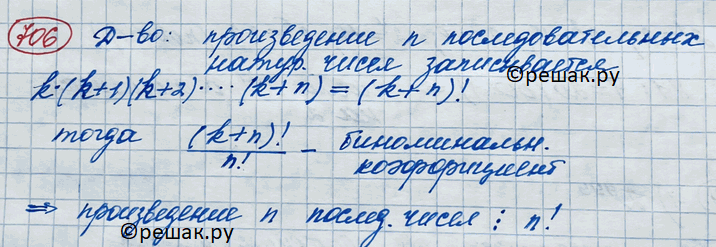 706 Д-во: произведение n последовательных
натур. чисел записывается
©решак.ру
k·(k+1)(k+2)····(k+n)=(k+n)!
тогда (k+n)!/n! – биноминальн.
коэффициент
⇒ произведение n послед. чисел ⋮ n!
©решак.ру